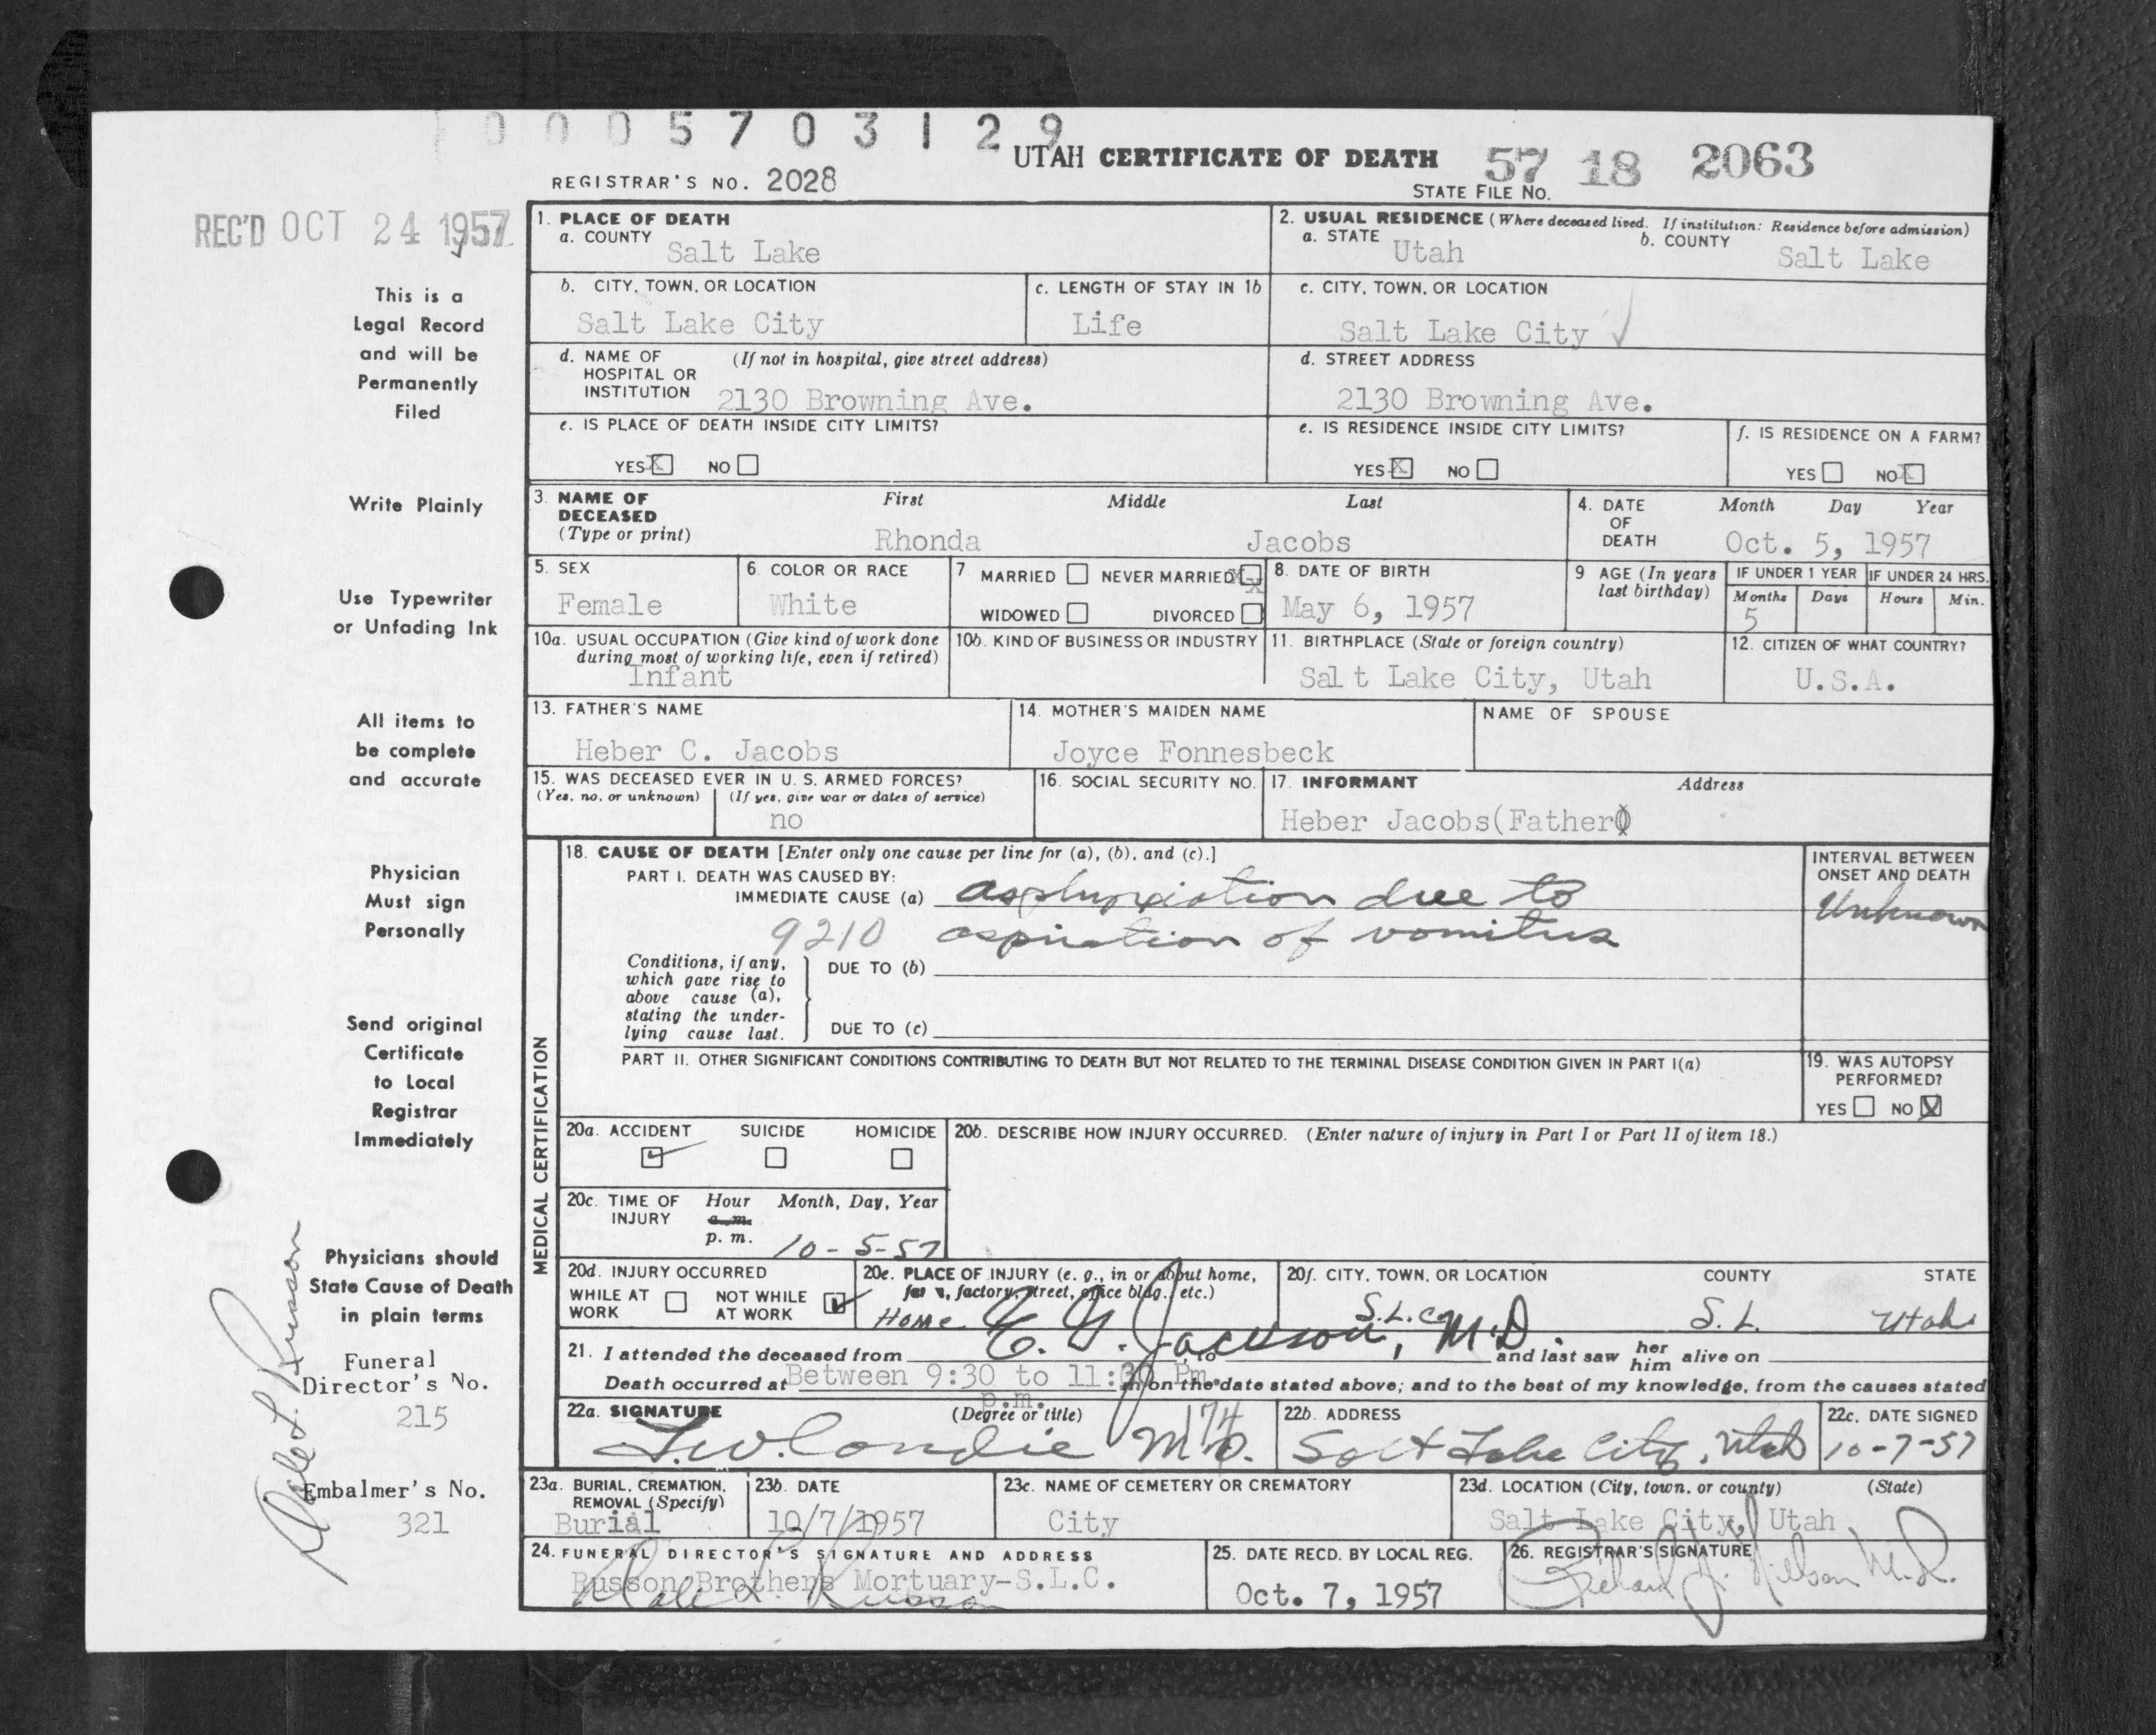 0005703129
UTAH CERTIFICATE OF DEATH 57 18 2063
REGISTRAR'S NO. 2028 STATE FILE NO.
REC'D OCT 24 1957
This is a
Legal Record
and will be
Permanently
Filed
Write Plainly
Use Typewriter
or Unfading Ink
All items to
be complete
and accurate
Physician
Must sign
Personally
Send original
Certificate
to Local
Registrar
Immediately
Physicians should
State Cause of Death
in plain terms
Funeral
Director's No.
215
Embalmer's No.
321
Dale L. Russon
1. PLACE OF DEATH
a. COUNTY Salt Lake
2. USUAL RESIDENCE (Where deceased lived. If institution: Residence before admission)
a. STATE Utah b. COUNTY Salt Lake
b. CITY, TOWN, OR LOCATION Salt Lake City
c. LENGTH OF STAY IN 1b Life
c. CITY, TOWN, OR LOCATION Salt Lake City ✓
d. NAME OF (If not in hospital, give street address)
HOSPITAL OR
INSTITUTION 2130 Browning Ave.
d. STREET ADDRESS
2130 Browning Ave.
e. IS PLACE OF DEATH INSIDE CITY LIMITS?
YES X NO
e. IS RESIDENCE INSIDE CITY LIMITS?
YES X NO
f. IS RESIDENCE ON A FARM?
YES NO X
3. NAME OF DECEASED (Type or print) First Middle Last
Rhonda Jacobs
4. DATE OF DEATH Month Day Year
Oct. 5, 1957
5. SEX
Female
6. COLOR OR RACE
White
7 MARRIED NEVER MARRIED X
WIDOWED DIVORCED
8. DATE OF BIRTH
May 6, 1957
9 AGE (In years last birthday)
IF UNDER 1 YEAR IF UNDER 24 HRS.
Months Days Hours Min.
5
10a. USUAL OCCUPATION (Give kind of work done
during most of working life, even if retired)
Infant
10b. KIND OF BUSINESS OR INDUSTRY
11. BIRTHPLACE (State or foreign country)
Sal t Lake City, Utah
12. CITIZEN OF WHAT COUNTRY?
U.S.A.
13. FATHER'S NAME
Heber C. Jacobs
14. MOTHER'S MAIDEN NAME
Joyce Fonnesbeck
NAME OF SPOUSE
15. WAS DECEASED EVER IN U. S. ARMED FORCES?
(Yes, no, or unknown) (If yes, give war or dates of service)
no
16. SOCIAL SECURITY NO.
17. INFORMANT Address
Heber Jacobs(Father)
MEDICAL CERTIFICATION
18. CAUSE OF DEATH [Enter only one cause per line for (a), (b), and (c).]
PART I. DEATH WAS CAUSED BY:
IMMEDIATE CAUSE (a) asphyxiation due to
9210 aspiration of vomitus
INTERVAL BETWEEN
ONSET AND DEATH
Unknown
Conditions, if any,
which gave rise to
above cause (a),
stating the under-
lying cause last.
DUE TO (b)
DUE TO (c)
PART II. OTHER SIGNIFICANT CONDITIONS CONTRIBUTING TO DEATH BUT NOT RELATED TO THE TERMINAL DISEASE CONDITION GIVEN IN PART I(a)
19. WAS AUTOPSY
PERFORMED?
YES NO X
20a. ACCIDENT SUICIDE HOMICIDE
✓
20b. DESCRIBE HOW INJURY OCCURRED. (Enter nature of injury in Part I or Part II of item 18.)
20c. TIME OF INJURY Hour Month, Day, Year
a. m.
p. m. 10-5-57
20d. INJURY OCCURRED
WHILE AT WORK NOT WHILE AT WORK ✓
20e. PLACE OF INJURY (e. g., in or about home,
farm, factory, street, office bldg., etc.)
Home
20f. CITY, TOWN, OR LOCATION COUNTY STATE
S.L.C. S.L. Utah
C. G. Jackson, M.D.
21. I attended the deceased from to and last saw her him alive on
Death occurred at Between 9:30 to 11:30 Pm. m on the date stated above; and to the best of my knowledge, from the causes stated
p.m.
22a. SIGNATURE (Degree or title)
L.W. Condie M.D. 174
22b. ADDRESS
Salt Lake City, Utah
22c. DATE SIGNED
10-7-57
23a. BURIAL, CREMATION,
REMOVAL (Specify)
Burial
23b. DATE
10/7/1957
23c. NAME OF CEMETERY OR CREMATORY
City
23d. LOCATION (City, town, or county) (State)
Salt Lake City, Utah
24. FUNERAL DIRECTOR'S SIGNATURE AND ADDRESS
Russon Brothers Mortuary-S.L.C.
Dale L. Russon
25. DATE RECD. BY LOCAL REG.
Oct. 7, 1957
26. REGISTRAR'S SIGNATURE
Richard J. Nilson M.D.